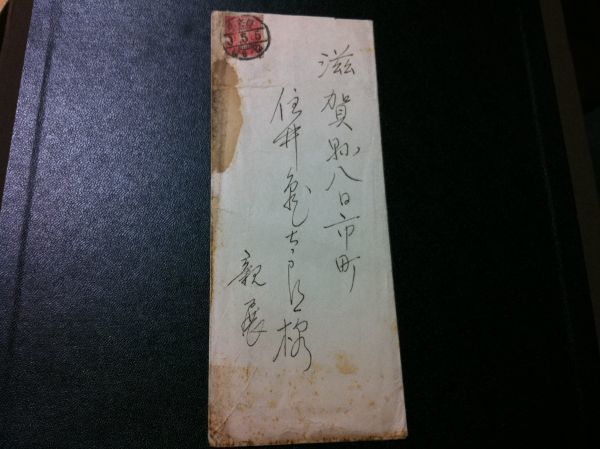 滋賀縣八日市町
住井亀太郎様
親展